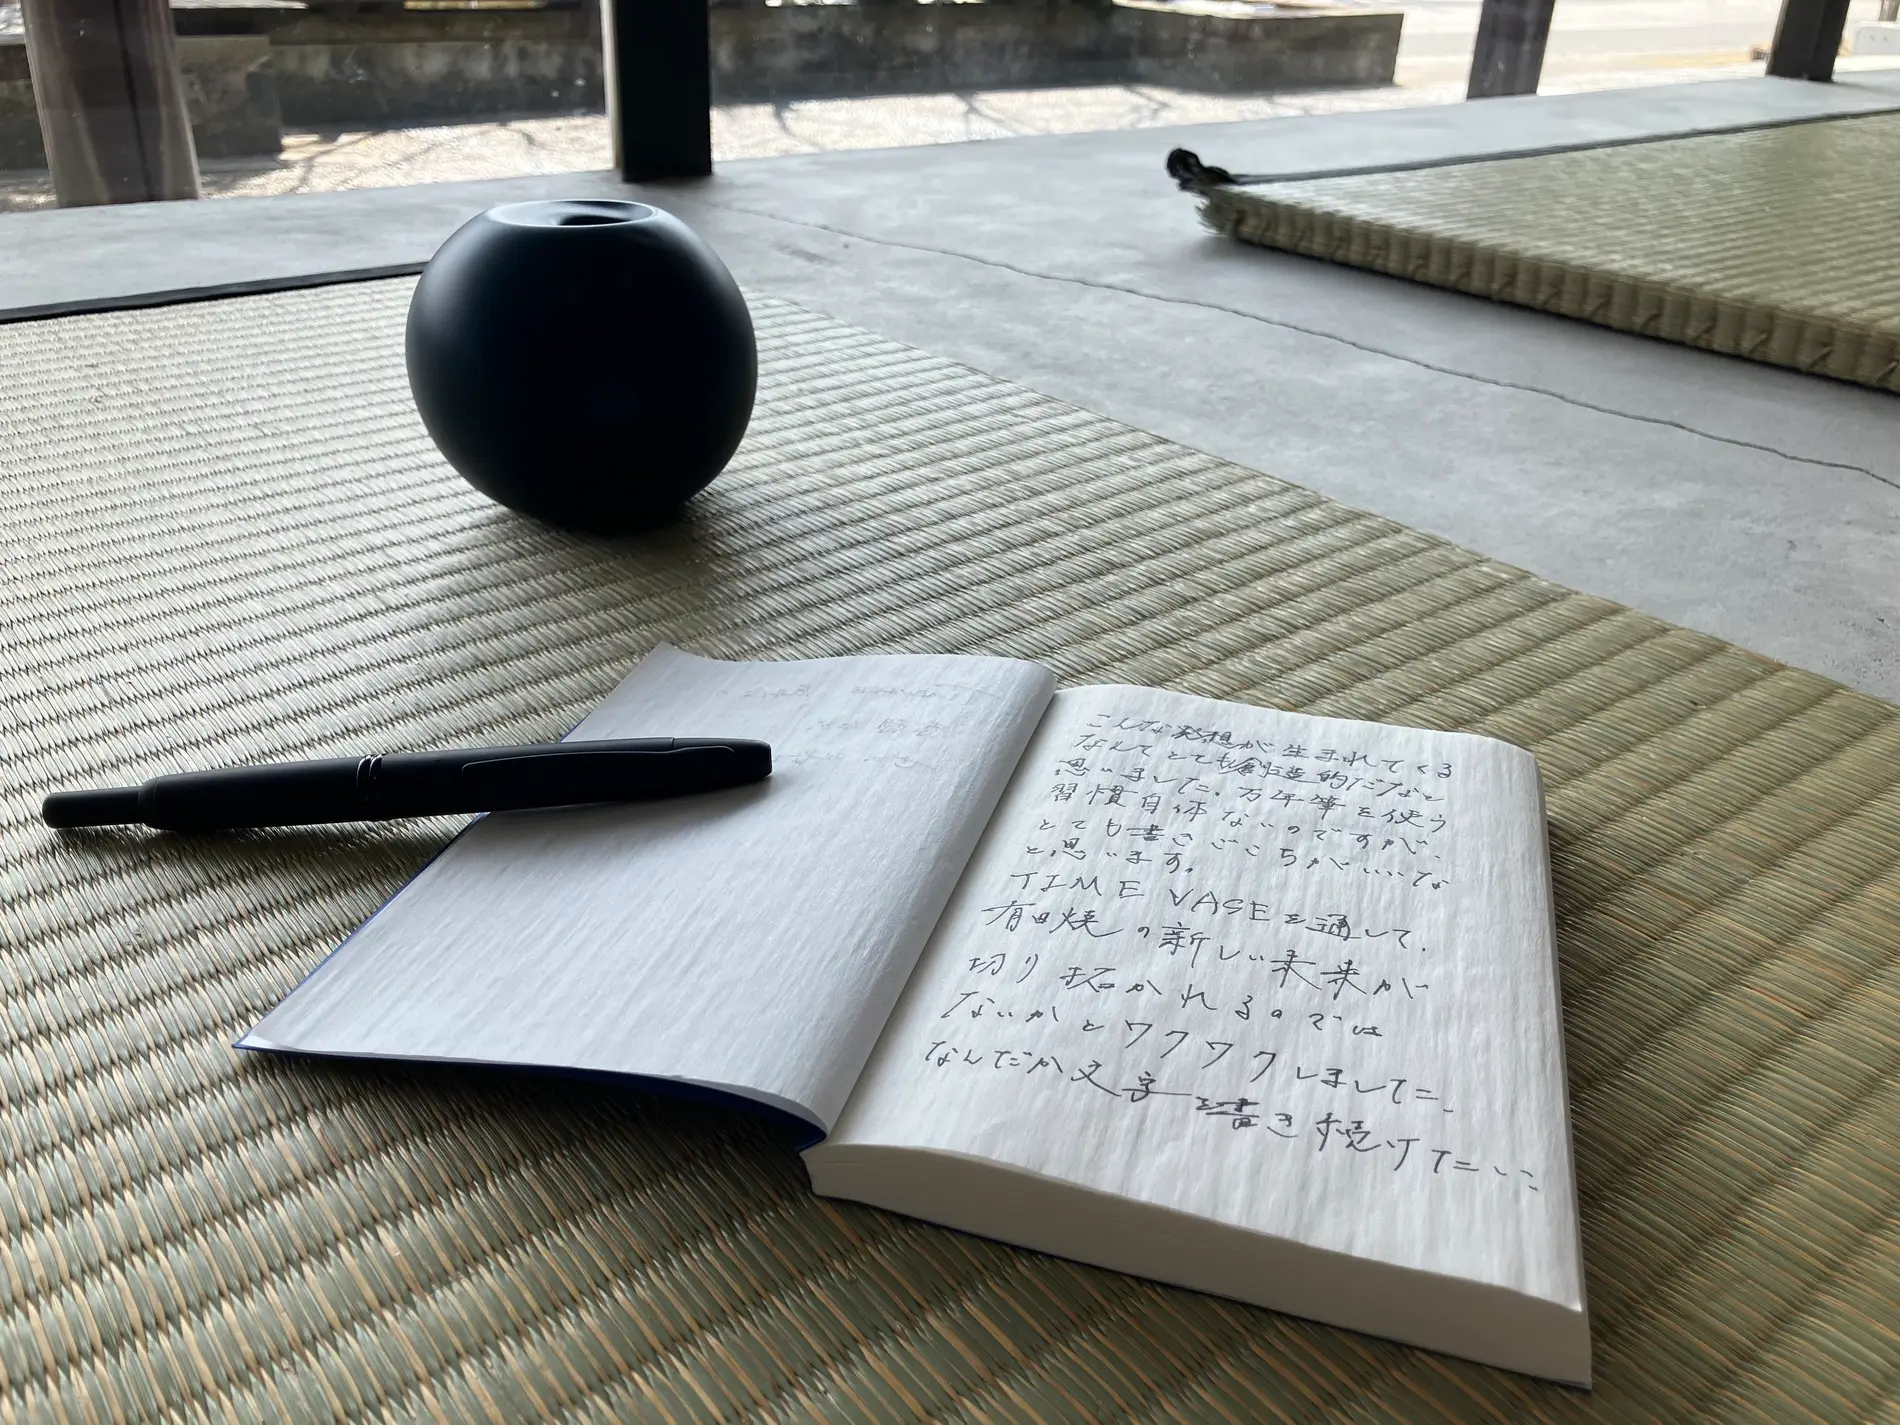 こんな発想が生まれてくる
なんてとても創造的だなと
思いました。万年筆を使う
習慣自体ないのですが、
とても書きごこちがいいな
と思います。
TIME VASEを通して、
有田焼の新しい未来が
切り拓かれるのでは
ないかとワクワクしました。
なんだか文字を書き続けたい